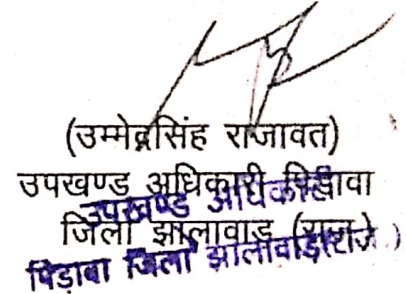 (उम्मेद्रसिंह राजावत)
उपखण्ड अधिकारी पिडावा
जिला झालावाड़ (राज.)
उपखण्ड अधिकारी
पिड़ावा जिला झालावाड़ (राज.)